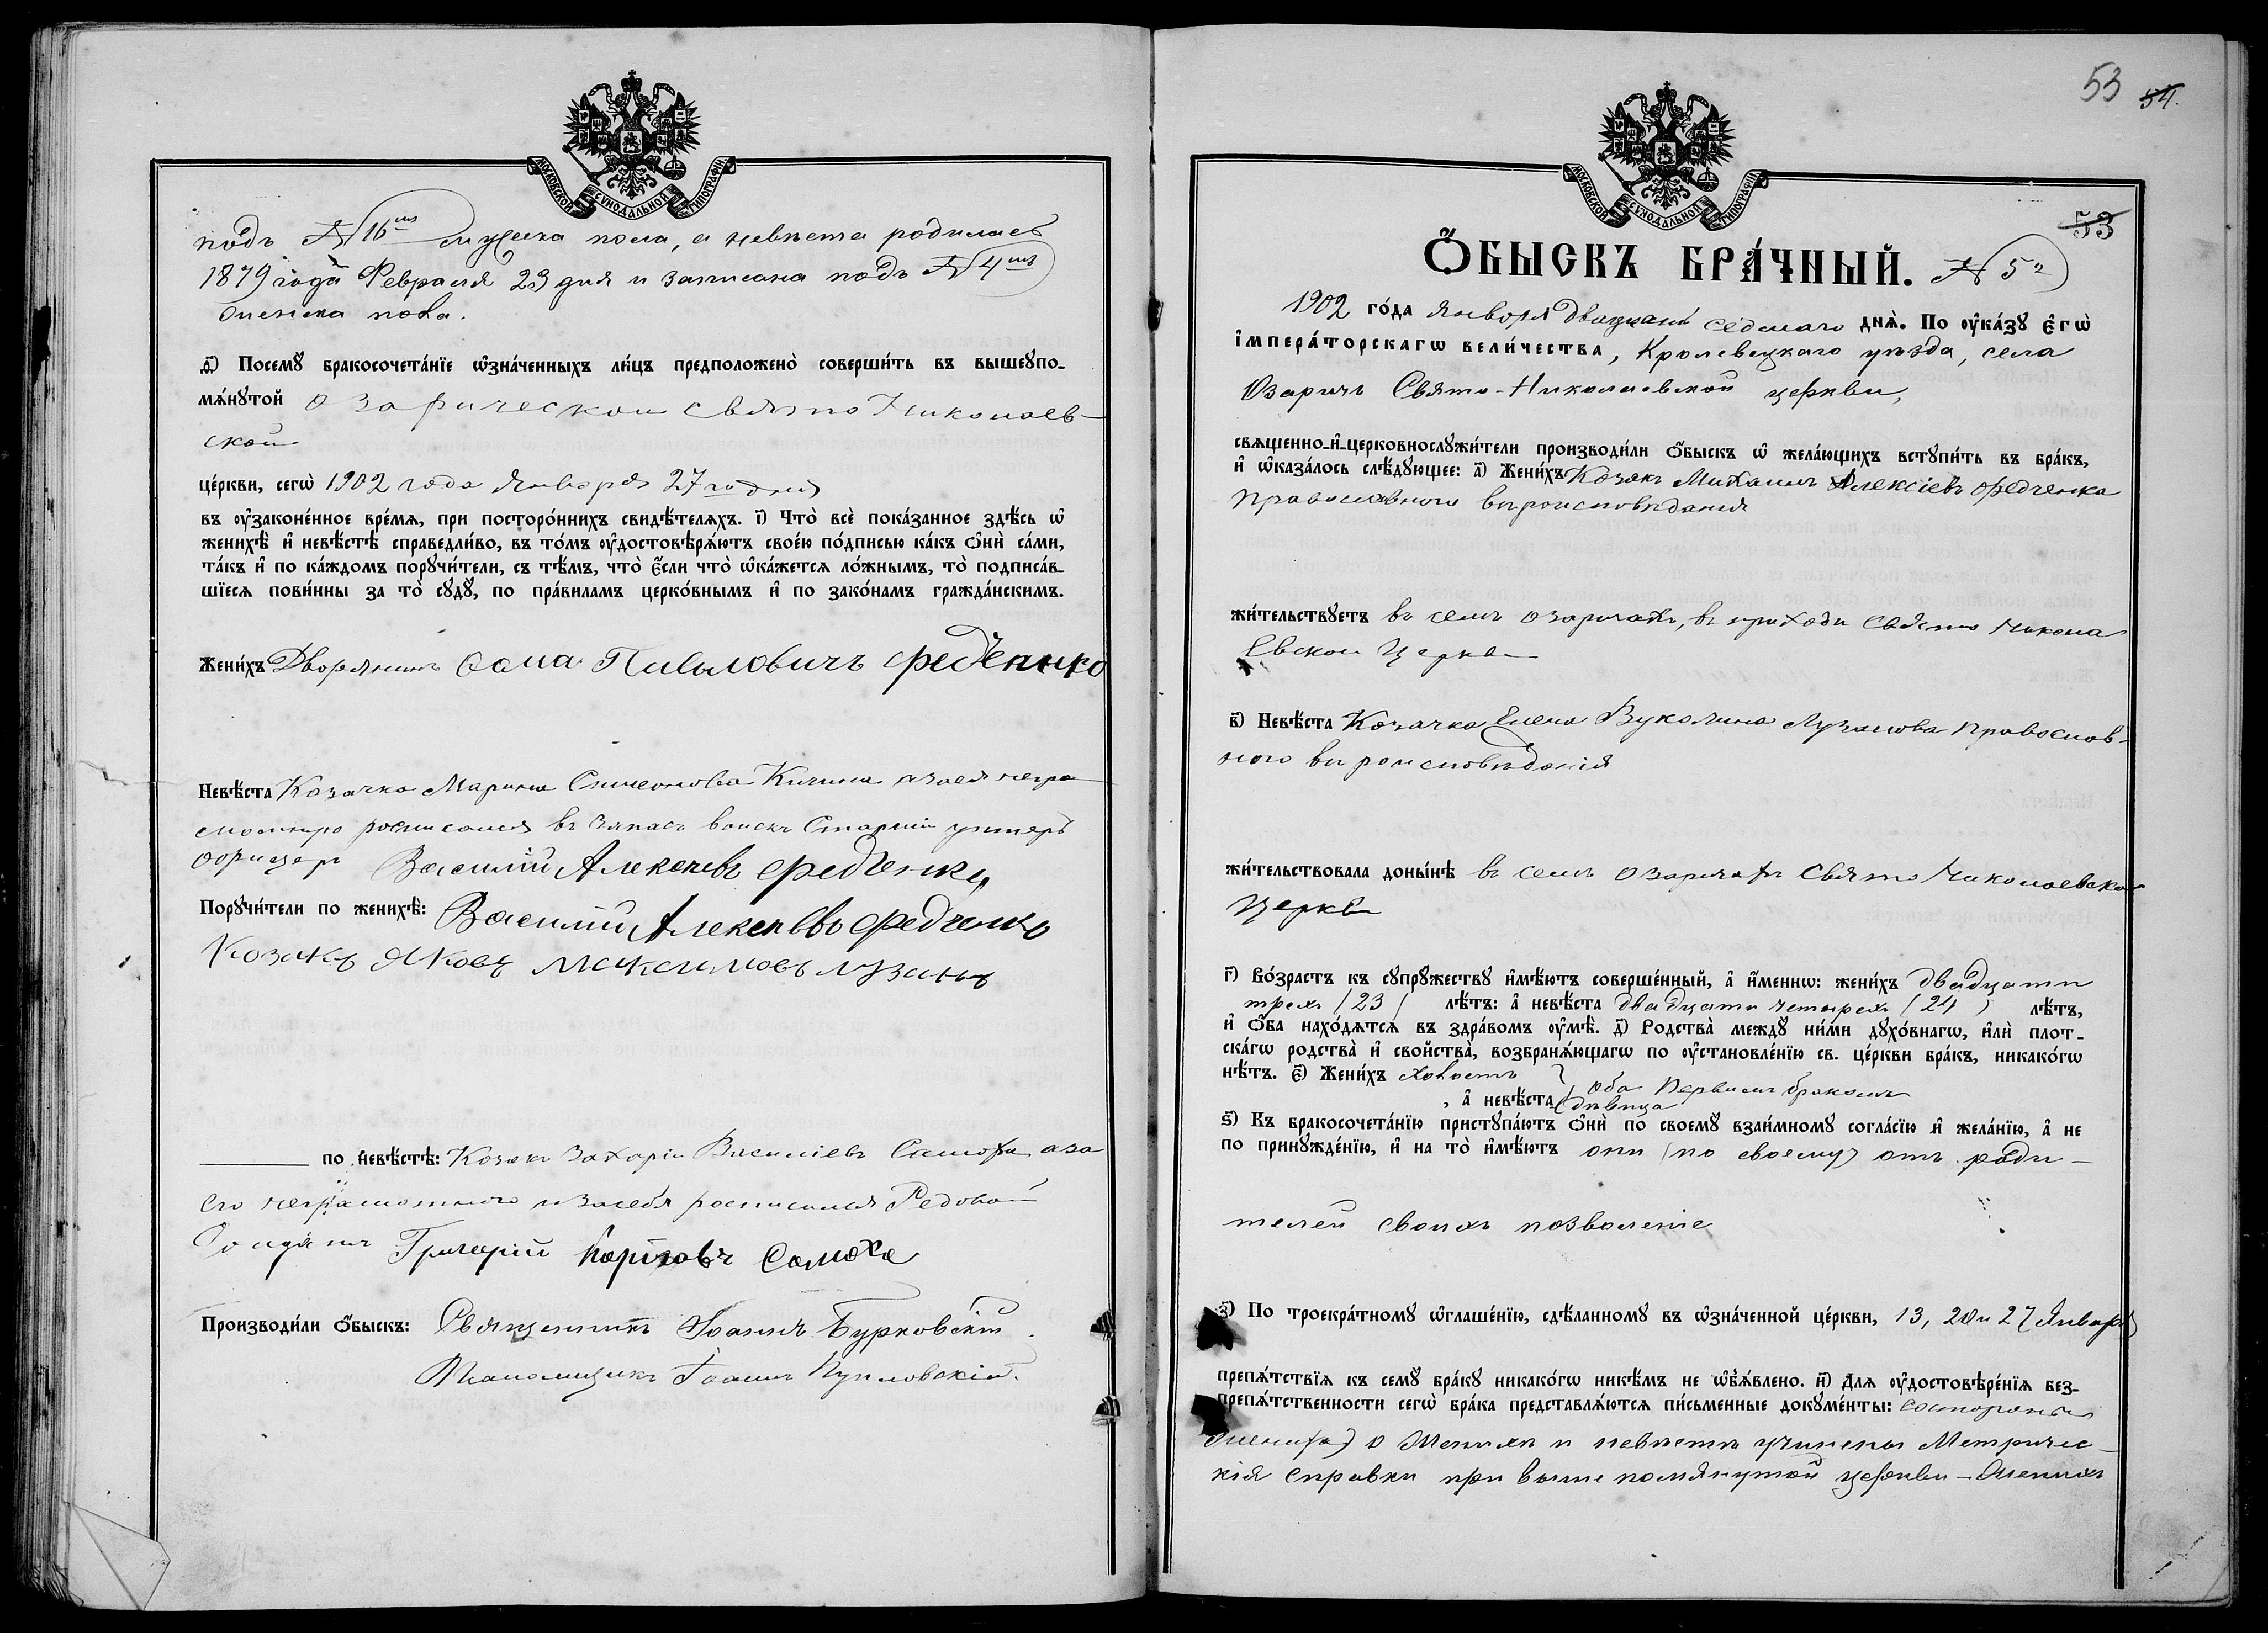 МОСКОВСКОЙ СѴНОДАЛЬНОЙ ТИПОГРАФІИ
подъ №16мъ мужска пола, а невѣста родилась
1879 года Февраля 23 дня и записана подъ №4мъ
женска пола.
д҃) Посемꙋ бракосочета́нїе ѡ҆зна́ченныхъ ли́цъ предположено̀ соверши́ть въ вышеꙋпо-
мѧ́нꙋтой Озарической Свято Николаев-
ской
це́ркви, сегѡ̀ 1902 года Января 27го дня
въ ᲂу҆законе́нное вре́мѧ, при посторо́ннихъ свидѣ́телѧхъ. і҃) Что̀ всѐ пока́занное здѣ́сь ѡ҆
женихѣ̀ и҆ невѣ́стѣ справедли́во, въ то́мъ ᲂу҆достовѣрѧ́ютъ свое́ю по́дписью ка́къ ѻ҆нѝ са́ми,
та́къ и҆ по ка́ждомъ порꙋчи́тели, съ тѣ́мъ, что̀ є҆́сли что̀ ѡ҆ка́жетсѧ ло́жнымъ, то̀ подписа́в-
шїесѧ пови́нны за то̀ сꙋдꙋ̀, по пра́виламъ церко́внымъ и҆ по зако́намъ гражда́нскимъ.
Жени́хъ Дворянинъ Фома Павловичъ Федченко
Невѣ́ста Козачка Марина Симеонова Кичина а за ея негра-
мотную росписался въ запасъ воискъ Старшій унтеръ
офицеръ Василий Алексеевъ Федченко
Порꙋчи́тели по женихѣ̀: Василий Алексеевъ Федченко
Козакъ Яковъ Максимовъ Лузанъ
по невѣ́стѣ: Козакъ Захарій Василіевъ Самоха а за
его неграмотного и за себя росписался Редовой
Солдатъ Григорій Самоха
Производи́ли ѻ҆́быскъ: Священникъ Іоаннъ Бурковскій
Псаломщикъ Іоаннъ
53 54.
МОСКОВСКОЙ СѴНОДАЛЬНОЙ ТИПОГРАФІИ
53
Ѻ҆́БЫСКЪ БРА́ЧНЫЙ. № 5й
1902 го́да Января двадцать седмаго днѧ̀. По ᲂу҆ка́зꙋ є҆гѡ̀
и҆мпера́торскагѡ вели́чества, Кролевецкаго уѣзда, села
Озаричъ Свято-Николаевской церкви,
свѧщенно-и҆-церковнослꙋжи́тели производи́ли ѻ҆́быскъ ѡ҆ жела́ющихъ встꙋпи́ть въ бра́къ,
и҆ ѡ҆каза́лось слѣ́дꙋющее: а҃) Жени́хъ Козакъ Михаилъ Алексіевъ Федченко
православного вѣроисповѣданія
жи́тельствꙋетъ въ селѣ Озаричахъ, въ приходи Свято Никола
евской Церкви
в҃) Невѣ́ста Козачка Елена Вуколина Лузанова Православ-
ного вѣроисповѣданія
жи́тельствовала доны́нѣ въ селѣ Озаричахъ Свято Николаевской
Церкви
г҃) Во́зрастъ къ сꙋпрꙋ́жествꙋ и҆мѣ́ютъ соверше́нный, а҆ и҆́меннѡ: жени́хъ двадцати
трехъ (23) лѣ́тъ: а҆ невѣ́ста двадцати четырехъ (24) лѣ́тъ,
и҆ ѻ҆́ба нахо́дѧтсѧ въ здра́вомъ ᲂу҆мѣ̀. д҃) Родства̀ междꙋ̀ ни́ми дꙋхо́внагѡ, и҆лѝ плот-
ска́гѡ родства̀ и҆ свойства̀, возбранѧ́ющагѡ по ᲂу҆становле́нїю св. це́ркви бра́къ, никако́гѡ
нѣ́тъ. є҃) Жени́хъ холостъ
, а҆ невѣ́ста дѣвица оба Первымъ бракомъ
ѕ҃) Къ бракосочета́нїю пристꙋпа́ютъ ѻ҆нѝ по своемꙋ̀ взаи́мномꙋ согла́сїю и҆ жела́нїю, а҆ не
по принꙋжде́нїю, и҆ на то̀ и҆мѣ́ютъ они (по своему) отъ роди-
телей своихъ позволеніе
з҃) По троекра́тномꙋ ѡ҆глаше́нїю, сдѣ́ланномꙋ въ ѡ҆зна́ченной це́ркви, 13, 20 и 27 Января
препѧ́тствїѧ къ семꙋ̀ бра́кꙋ никако́гѡ никѣ́мъ не ѡ҆б̾ѧ́влено. и҃) Длѧ ᲂу҆достовѣре́нїѧ без-
препѧ́тственности сегѡ̀ бра́ка представлѧ́ютсѧ пи́сьменные докꙋме́нты: со стороны
жениха) о Женихѣ и невѣстѣ учинены Метричес-
кія справки при вышепомянутой церкви - Женихъ